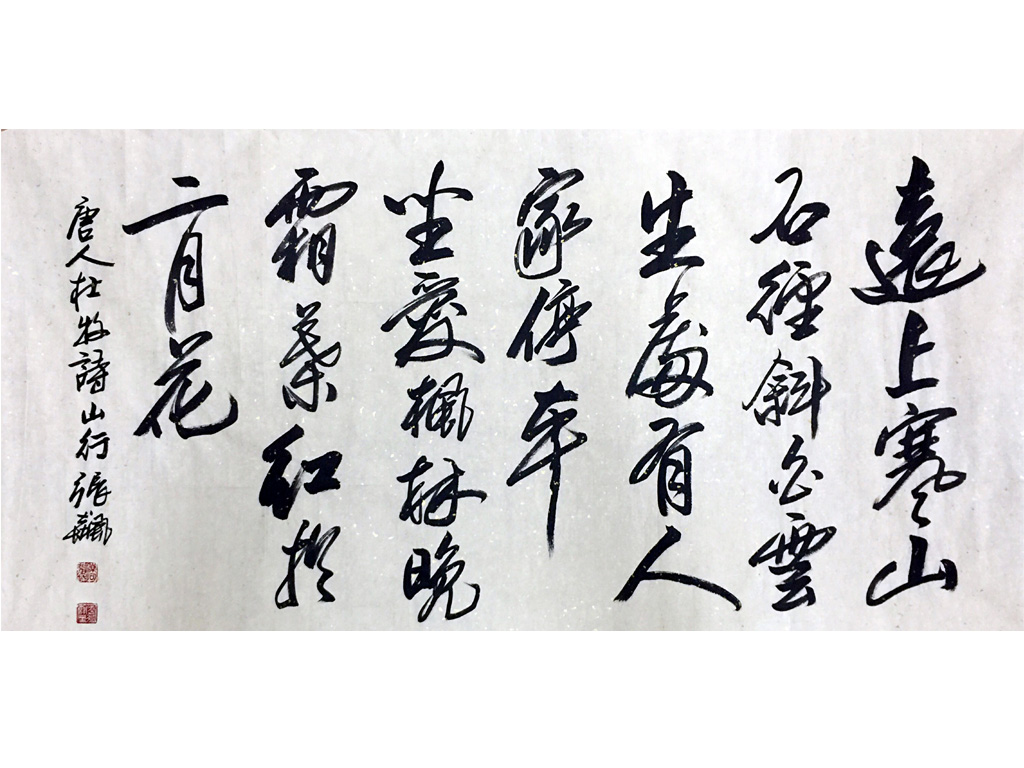 遠上寒山
石徑斜白雲
生處有人
家停車
坐愛楓林晚
霜葉紅於
二月花
唐人杜牧詩山行張飆